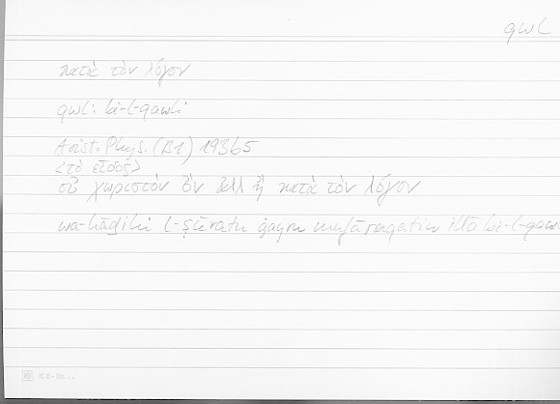 qwl
κατὰ τὸν λόγον
qwl: bi-l-qawli
Arist. Phys. (B1) 193b5
<τὸ εἶδος>
οὐ χωριστὸν ὂν ἀλλ' ἢ κατὰ τὸν λόγον
wa-hāḏihi l-ṣūratu ġayru mufāraqatin illā bi-l-qawl